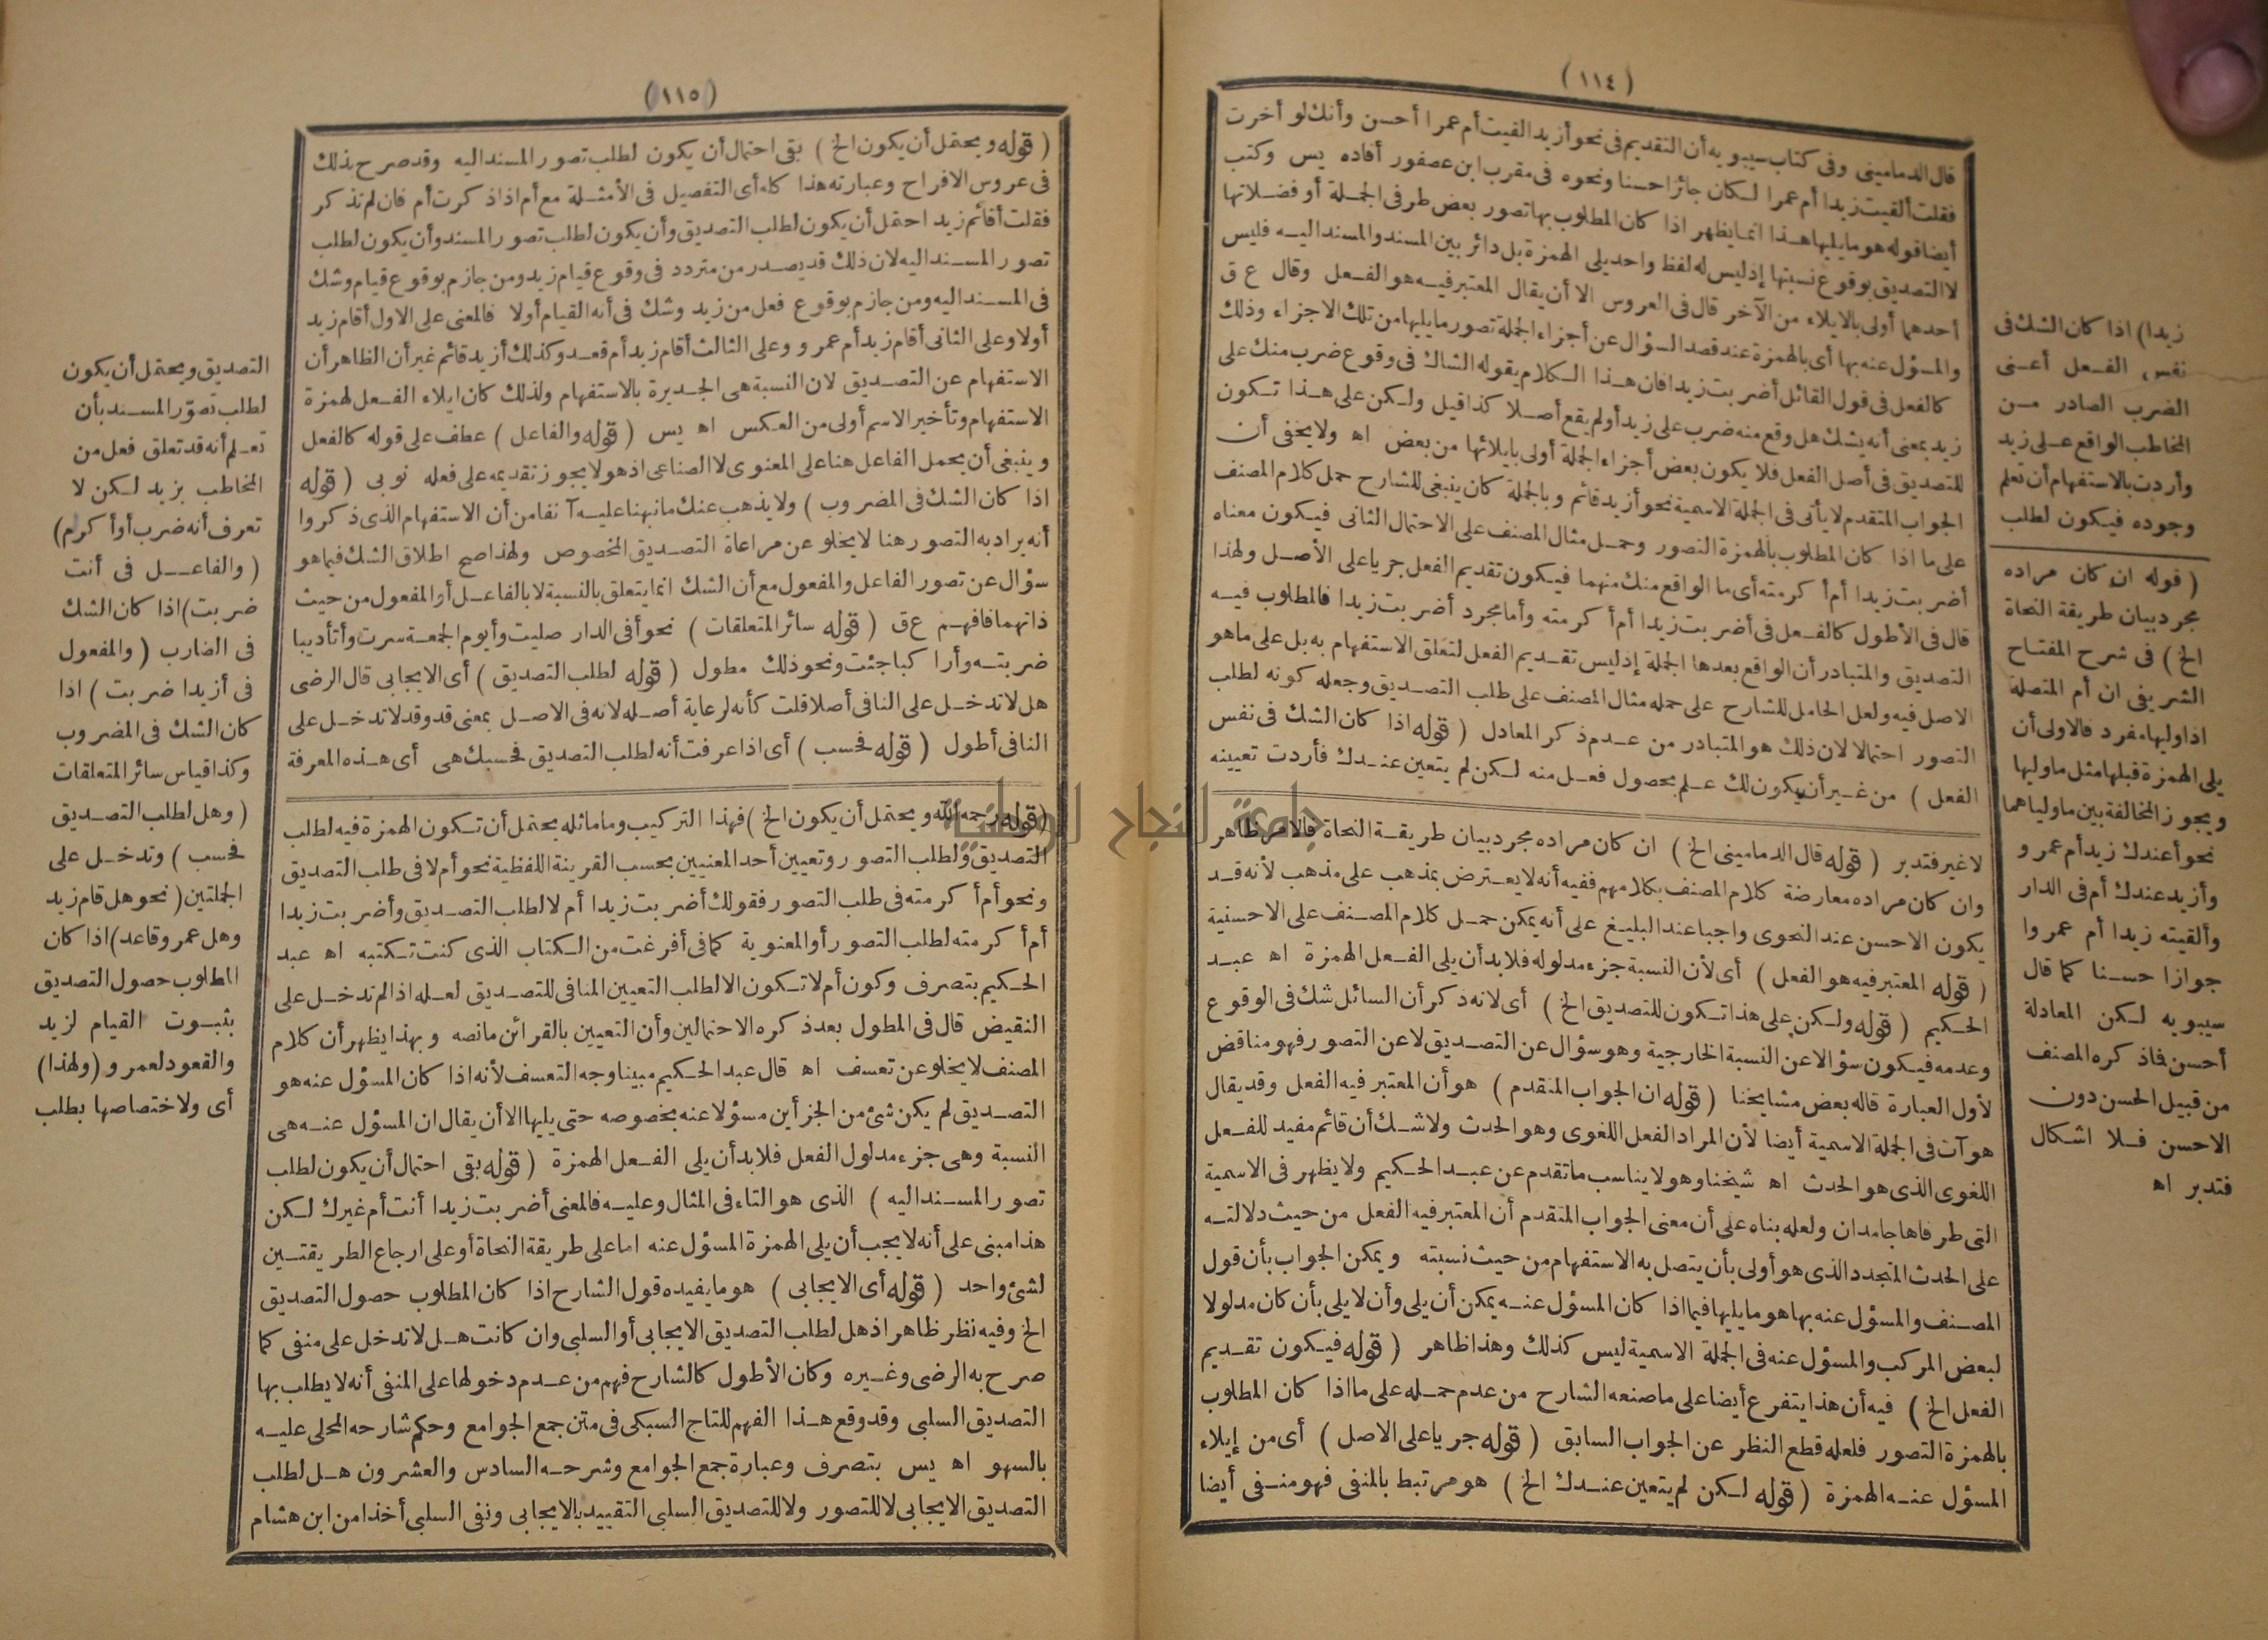 (١١٤)
قال الدمامينى وفى كتاب سيبويه أن التقديم فى نحو أزيدا لقيت أم عمرا أحسن وأنك لو أخرت
فقلت ألقيت زيدا أم عمرا لكان جائزا حسنا ونحوه فى مقرب ابن عصفور أفاده يس وكتب
أيضا قوله هو ما يليها هذا انما يظهر اذا كان المطلوب بها تصور بعض طرفى الجملة أو فضلاتها
لا التصديق بوقوع نسبتها إذ ليس له لفظ واحد يلى الهمزة بل دائر بين المسند والمسند اليه فليس
أحدهما أولى بالايلاء من الآخر قال فى العروس الا أن يقال المعتبر فيه هو الفعل وقال ع ق
والمسؤل عنه بها أى بالهمزة عند قصد السؤال عن أجزاء الجملة تصور ما يليها من تلك الاجزاء وذلك
كالفعل فى قول القائل أضربت زيدا فان هذا الكلام يقوله الشاك فى وقوع ضرب منك على
زيد بمعنى أنه يشك هل وقع منه ضرب على زيد أولم يقع أصلا كذا قيل ولكن على هذا تكون
للتصديق فى أصل الفعل فلا يكون بعض أجزاء الجملة أولى بايلائها من بعض اه ولا يخفى أن
الجواب المتقدم لا يأتى فى الجملة الاسمية نحو أزيد قائم وبالجملة كان ينبغى للشارح حمل كلام المصنف
على ما اذا كان المطلوب بالهمزة التصور وحمل مثال المصنف على الاحتمال الثانى فيكون معناه
أضربت زيدا أم أكرمته أى ما الواقع منك منهما فيكون تقديم الفعل جريا على الأصل ولهذا
قال فى الأطول كالفعل فى أضربت زيدا أم أكرمته وأما مجرد أضربت زيدا فالمطلوب فيه
التصديق والمتبادر أن الواقع بعدها الجملة إذ ليس تقديم الفعل لتعلق الاستفهام به بل على ما هو
الاصل فيه ولعل الحامل للشارح على حمله مثال المصنف على طلب التصديق وجعله كونه لطلب
التصور احتمالا لان ذلك هو المتبادر من عدم ذكر المعادل (قوله اذا كان الشك فى نفس
الفعل) من غير أن يكون لك علم بحصول فعل منه لكن لم يتعين عندك فأردت تعيينه
لا غير فتدبر (قوله قال الدمامينى الخ) ان كان مراده مجرد بيان طريقة النحاة فالامر ظاهر
وان كان مراده معارضة كلام المصنف بكلامهم ففيه أنه لا يعترض بمذهب على مذهب لأنه قد
يكون الاحسن عند النحوى واجبا عند البليغ على أنه يمكن حمل كلام المصنف على الاحسنية
(قوله المعتبر فيه هو الفعل) أى لأن النسبة جزء مدلوله فلا بد أن يلى الفعل الهمزة اه عبد
الحكيم (قوله ولكن على هذا تكون للتصديق الخ) أى لانه ذكر أن السائل شك فى الوقوع
وعدمه فيكون سؤالا عن النسبة الخارجية وهو سؤال عن التصديق لا عن التصور فهو مناقض
لأول العبارة قاله بعض مشايخنا (قوله ان الجواب المتقدم) هو أن المعتبر فيه الفعل وقد يقال
هو آت فى الجملة الاسمية أيضا لأن المراد الفعل اللغوى وهو الحدث ولا شك أن قائم مفيد للفعل
اللغوى الذى هو الحدث اه شيخنا وهو لا يناسب ما تقدم عن عبد الحكيم ولا يظهر فى الاسمية
التى طرفاها جامدان ولعله بناه على أن معنى الجواب المتقدم أن المعتبر فيه الفعل من حيث دلالته
على الحدث المتجدد الذى هو أولى بأن يتصل به الاستفهام من حيث نسبته ويمكن الجواب بأن قول
المصنف والمسؤل عنه بها هو ما يليها فيما اذا كان المسؤل عنه يمكن أن يلى وأن لا يلى بأن كان مدلولا
لبعض المركب والمسؤل عنه فى الجملة الاسمية ليس كذلك وهذا ظاهر (قوله فيكون تقديم
الفعل الخ) فيه أن هذا يتفرع أيضا على ما صنعه الشارح من عدم حمله على ما اذا كان المطلوب
بالهمزة التصور فلعله قطع النظر عن الجواب السابق (قوله جريا على الاصل) أى من إيلاء
المسؤل عنه الهمزة (قوله لكن لم يتعين عندك الخ) هو مرتبط بالمنفى فهو منفى أيضا
زيدا) اذا كان الشك فى
نفس الفعل أعنى
الضرب الصادر من
المخاطب الواقع على زيد
وأردت بالاستفهام أن تعلم
وجوده فيكون لطلب
(قوله ان كان مراده
مجرد بيان طريقة النحاة
الخ) فى شرح المفتاح
الشريفى ان أم المتصلة
اذا وليها مفرد فالاولى أن
يلى الهمزة قبلها مثل ما وليها
ويجوز المخالفة بين ما ولياهما
نحو أعندك زيد أم عمرو
وأزيد عندك أم فى الدار
وألقيته زيدا أم عمروا
جوازا حسنا كما قال
سيبويه لكن المعادلة
أحسن فاذكره المصنف
من قبيل الحسن دون
الاحسن فلا اشكال
فتدبر اه
(١١٥)
(قوله ويحتمل أن يكون الخ) بقى احتمال أن يكون لطلب تصور المسند اليه وقد صرح بذلك
فى عروس الافراح وعبارته هذا كله أى التفصيل فى الأمثلة مع أم اذا ذكرت أم فان لم تذكر
فقلت أقائم زيد احتمل أن يكون لطلب التصديق وأن يكون لطلب تصور المسند وأن يكون لطلب
تصور المسند اليه لان ذلك قد يصدر من متردد فى وقوع قيام زيد ومن جازم بوقوع قيام وشك
فى المسند اليه ومن جازم بوقوع فعل من زيد وشك فى أنه القيام أولا فالمعنى على الاول أقام زيد
أولا وعلى الثانى أقام زيد أم عمرو وعلى الثالث أقام زيد أم قعد وكذلك أزيد قائم غير أن الظاهر أن
الاستفهام عن التصديق لان النسبة هى الجديرة بالاستفهام ولذلك كان ايلاء الفعل لهمزة
الاستفهام وتأخير الاسم أولى من العكس اه يس (قوله والفاعل) عطف على قوله كالفعل
وينبغى أن يحمل الفاعل هنا على المعنوى لا الصناعى اذ هو لا يجوز تقديمه على فعله نوبى (قوله
اذا كان الشك فى المضروب) ولا يذهب عنك ما نبهنا عليه آنفا من أن الاستفهام الذى ذكروا
أنه يراد به التصور هنا لا يخلو عن مراعاة التصديق المخصوص ولهذا صح اطلاق الشك فيما هو
سؤال عن تصور الفاعل والمفعول مع أن الشك انما يتعلق بالنسبة لا بالفاعل أو المفعول من حيث
ذاتهما فافهم ع ق (قوله سائر المتعلقات) نحو أفى الدار صليت وأيوم الجمعة سرت وأتأديبا
ضربته وأراكبا جئت ونحو ذلك مطول (قوله لطلب التصديق) أى الايجابى قال الرضى
هل لا تدخل على النافى أصلا قلت كأنه لرعاية أصله لانه فى الاصل بمعنى قد وقد لا تدخل على
النافى أطول (قوله فحسب) أى اذا عرفت أنه لطلب التصديق فحسبك هى أى هذه المعرفة
(قوله رحمه الله ويحتمل أن يكون الخ) فهذا التركيب وما ماثله يحتمل أن تكون الهمزة فيه لطلب
التصديق ولطلب التصور وتعيين أحد المعنيين بحسب القرينة اللفظية نحو أم لا فى طلب التصديق
ونحو أم أكرمته فى طلب التصور فقولك أضربت زيدا أم لا لطلب التصديق وأضربت زيدا
أم أكرمته لطلب التصور أو المعنوية كما فى أفرغت من الكتاب الذى كنت تكتبه اه عبد
الحكيم بتصرف وكون أم لا تكون الا لطلب التعيين المنافى للتصديق لعله اذا لم تدخل على
النقيض قال فى المطول بعد ذكره الاحتمالين وأن التعيين بالقرائن ما نصه وبهذا يظهر أن كلام
المصنف لا يخلو عن تعسف اه قال عبد الحكيم مبينا وجه التعسف لأنه اذا كان المسؤل عنه هو
التصديق لم يكن شئ من الجزأين مسؤلا عنه بخصوصه حتى يليها الا أن يقال ان المسؤل عنه هى
النسبة وهى جزء مدلول الفعل فلا بد أن يلى الفعل الهمزة (قوله بقى احتمال أن يكون لطلب
تصور المسند اليه) الذى هو التاء فى المثال وعليه فالمعنى أضربت زيدا أنت أم غيرك لكن
هذا مبنى على أنه لا يجب أن يلى الهمزة المسؤل عنه اما على طريقة النحاة أو على ارجاع الطريقتين
لشئ واحد (قوله أى الايجابى) هو ما يفيده قول الشارح اذا كان المطلوب حصول التصديق
الخ وفيه نظر ظاهر اذ هل لطلب التصديق الايجابى أو السلبى وان كانت هل لا تدخل على منفى كما
صرح به الرضى وغيره وكان الأطول كالشارح فهم من عدم دخولها على المنفى أنه لا يطلب بها
التصديق السلبى وقد وقع هذا الفهم للتاج السبكى فى متن جمع الجوامع وحكم شارحه المحلى عليه
بالسهو اه يس بتصرف وعبارة جمع الجوامع وشرحه السادس والعشرون هل لطلب
التصديق الايجابى لا للتصور ولا للتصديق السلبى التقييد بالايجابى ونفى السلبى أخذا من ابن هشام
التصديق ويحتمل أن يكون
لطلب تصوّر المسند بأن
تعلم أنه قد تعلق فعل من
المخاطب بزيد لكن لا
تعرف أنه ضرب أو أكرم)
(والفاعل فى أنت
ضربت) اذا كان الشك
فى الضارب (والمفعول
فى أزيدا ضربت) اذا
كان الشك فى المضروب
وكذا قياس سائر المتعلقات
(وهل لطلب التصديق
فحسب) وتدخل على
الجملتين (نحو هل قام زيد
وهل عمرو قاعد) اذا كان
المطلوب حصول التصديق
بثبوت القيام لزيد
والقعود لعمرو (ولهذا)
أى ولاختصاصها بطلب
جامعة النجاح الوطنية